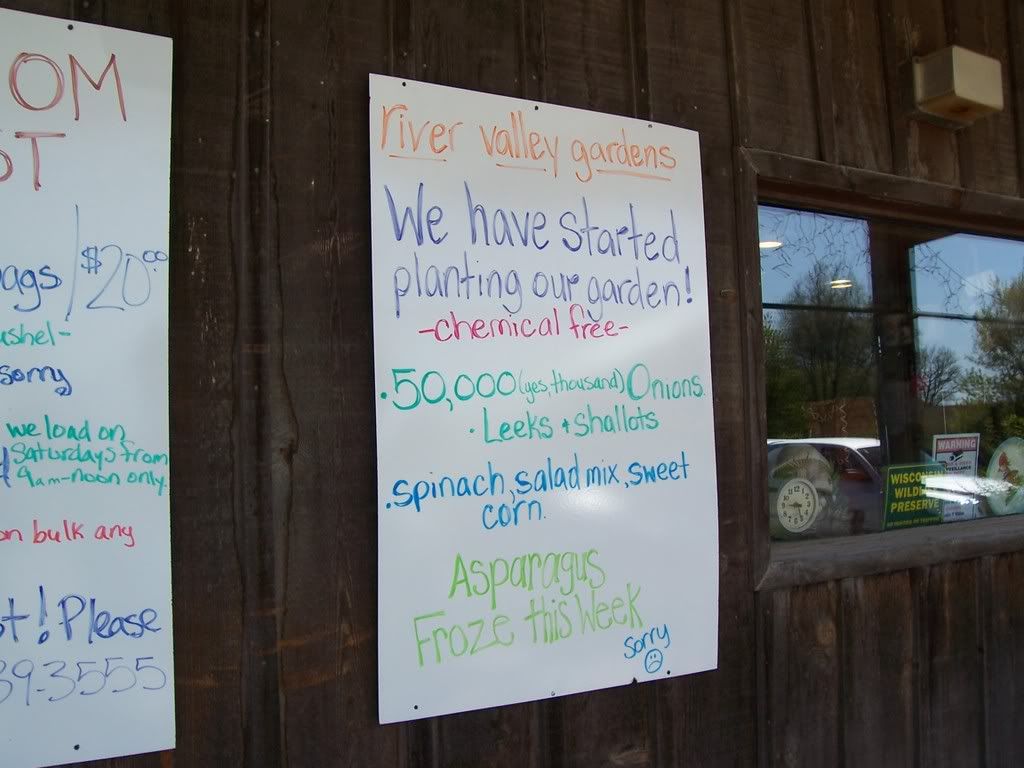 OM
ST
ags/$20.00
ushel-
sorry
we load on
Saturdays from
9am-noon only.
on bulk any
t! Please
39-3555
river valley gardens
We have started
planting our garden!
-chemical free-
·50,000 (yes, thousand) Onions.
·Leeks + shallots
·spinach, salad mix, sweet
corn.
Asparagus
Froze this Week
sorry
WARNING
WISCONSIN
WILDL
PRESERVE